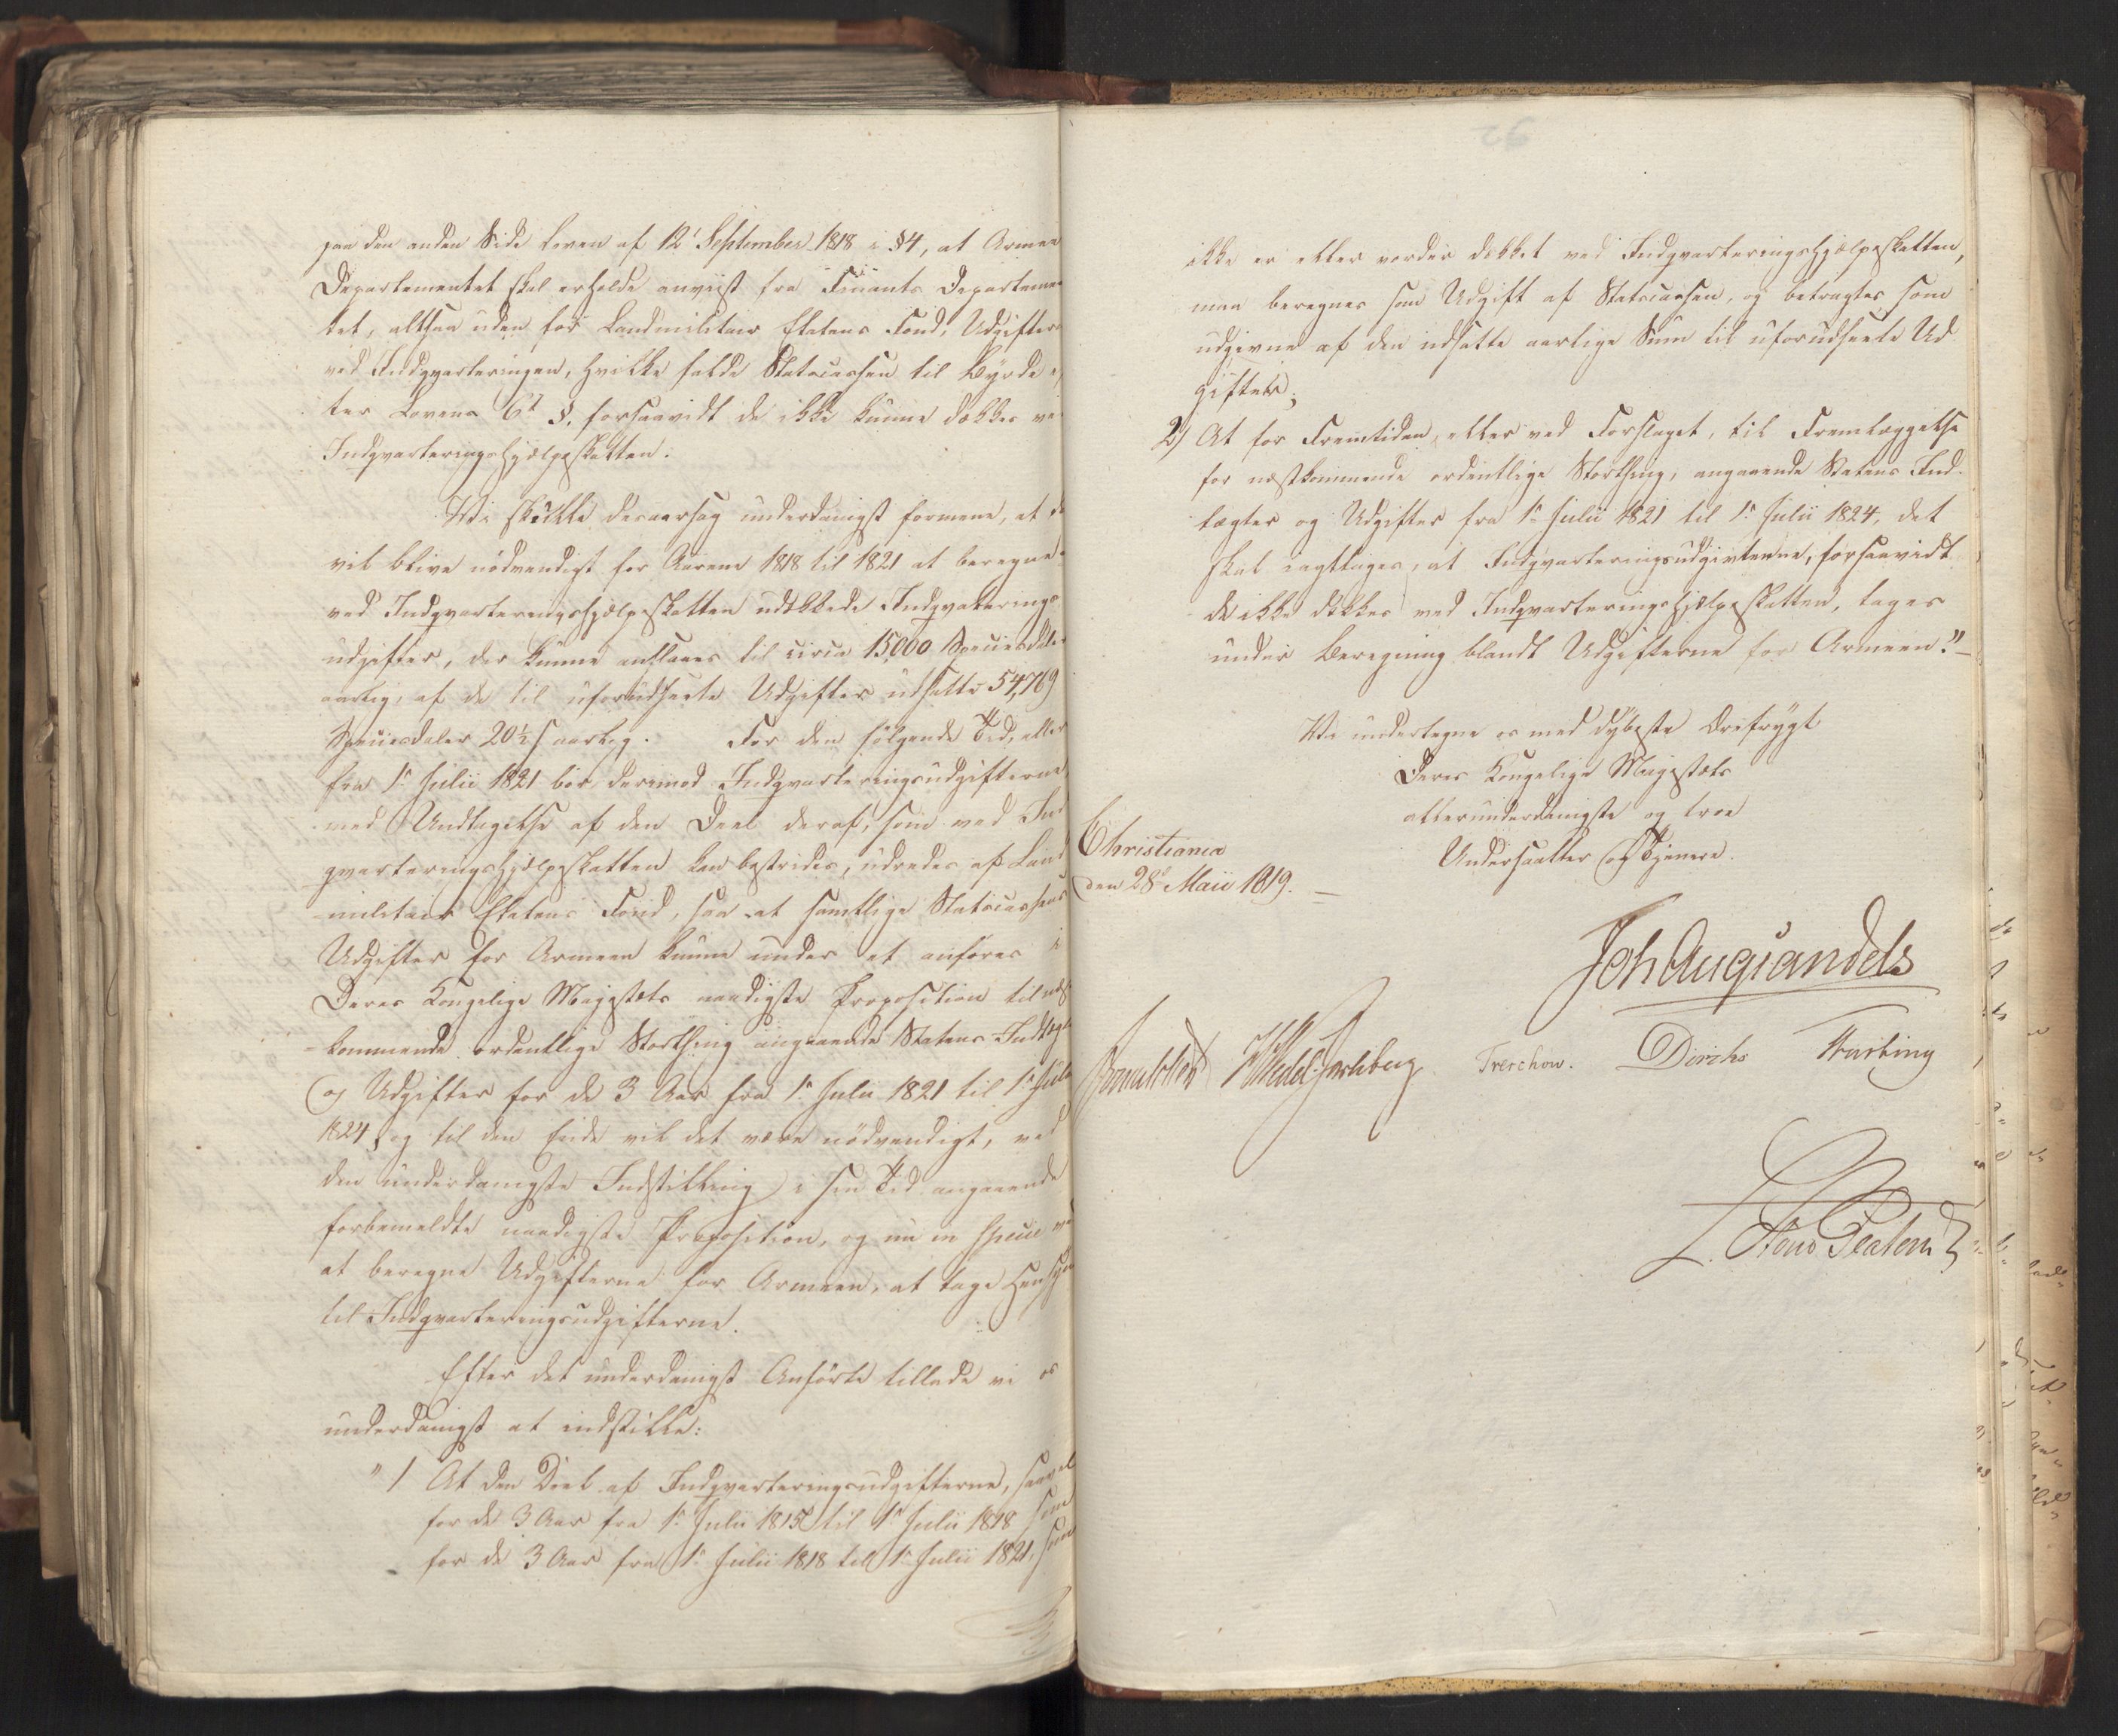 paa den anden Side Loven af 12' September 1818 i §4, at Armee
Departementet skal erholde anviist fra Finants Departemen
tet, altsaa uden for Landmilitair Etatens Fond, Udgifter
ved Indqvarteringen, hvilke falde Statscassen til Byrde ef
ter Lovens 6t §. forsaavidt de ikke kunne dækkes ve
Indqvarteringshjelpeskatten.
Vi skulle desaarsag underdanigst formene, at de
vil blive nödvendigt for Aarene 1818 til 1821 at beregne
ved Indqvarteringshjelpeskatten udækkede Indqvarterings
udgifter, der kunne anslaaes til circa 15,000 Speciesdaler
aarlig, af de til uforudseete Udgifter udsatte 54,769
Speciesdaler 20½ s aarlig. For den fölgende Tid, eller
fra 1r Julii 1821 bör derimod Indqvarteringsudgifterne,
med Undtagelse af den Deel deraf, som ved Ind
qvarteringshjelpeskatten kan bestrides, udredes af Land
militair Etatens Fond, saa at samtlige Statscassens
Udgifter for Armeen kunne under et anföres i
Deres Kongelige Majestæts naadigste Proposition til næst
kommende ordentlige Storthing angaaende Statens Indtægt
og Udgifter for de 3 Aar fra 1r Julii 1821 til 1r Julii
1824, og til den Ende vil det være nödvendigt, ved
den underdanigste Indstilling i sin Tid angaaende
forbemeldte naadigste Proposition, og nu in specie ved
at beregne Udgifterne for Armeen, at tage Hensyn
til Indqvarteringsudgifterne.
Efter det underdanigst Anförte tillade vi os
underdanigst at indstille:
" 1 At den Deel af Indqvarteringsudgifterne, saavel
for de 3 Aar fra 1r Julii 1815 til 1r Julii 1818 som
for de 3 Aar fra 1r Julii 1818 til 1r Julii 1821, som
ikke er eller vorder dækket ved Indqvarteringshjelpeskatten,
maa beregnes som Udgift af Statscassen, og betragtes som
udgivne af den udsatte aarlige Sum til uforudseete Ud
gifter;
2) At for Fremtiden, eller ved Forslaget, til Fremlæggelse
for næstkommende ordentlige Storthing, angaaende Statens Ind-
tægter og Udgifter fra 1r Julii 1821 til 1r Julii 1824, det
skal iagttages, at Indqvarteringsudgivterne, forsaavidt
de ikke dækkes ved Indqvarteringshjelpeskatten, tages
under Beregning blandt Udgifterne for Armeen." –
Vi undertegne os med dybeste Ærefrygt
Deres Kongelige Majestæts
allerunderdanigste og troe
Undersaatter og Tjenere.
Christiania
den 28d Maii 1819. –
Joh Aug Sandels
Sommerhielm HWedel-Jarlsberg Treschow. Diriks Fasting
L. Stoud Platou